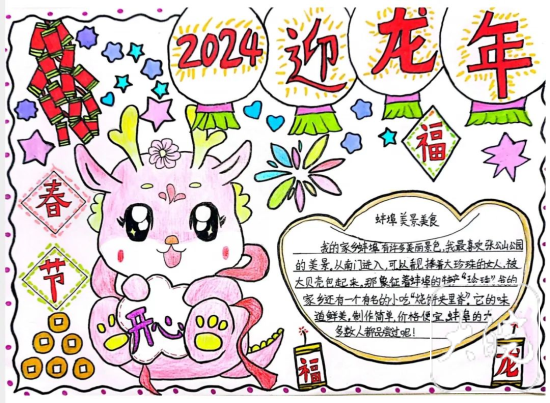 2024 迎龙年
春节
福
开心
蚌埠美景美食
我的家乡蚌埠有许多美丽景色,我最喜欢张公山公园
的美景,从南门进入,可以看见捧着大珍珠的女人,被
大贝壳包起来,那象征着蚌埠的特产"珍珠"我的
家乡还有一个有名的小吃"烧饼夹里脊"它的味
道鲜美,制作简单,价格便宜,蚌埠的
多数人都品尝过吧!
福
龙